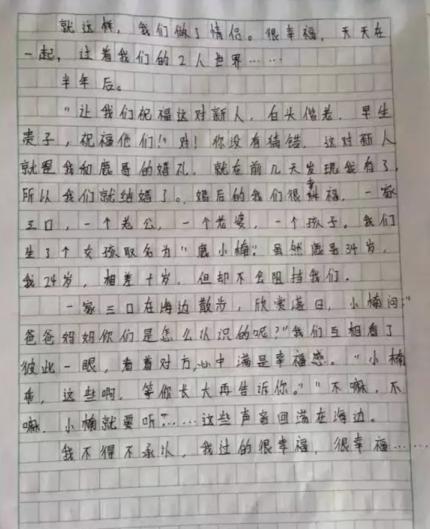 就这样，我们做了情侣。很幸福，天天在
一起，过着我们的2人世界……
半年后。
“让我们祝福这对新人，白头偕老，早生
贵子，祝福他们！”对！你没有猜错，这对新人
就是我和鹿哥的婚礼，就在前几天发现我有了，
所以我们就结婚了。婚后的我们很幸福，一家
三口，一个老公，一个老婆，一个孩子。我们
生了个女孩取名为“鹿小楠”。虽然鹿哥34岁，
我24岁，相差十岁，但却不会阻挡我们。
一家三口在海边散步，欣赏落日，小楠问：“
爸爸妈妈你们是怎么认识的呢？”我们互相看了
彼此一眼，看着对方，心中满是幸福感。“小楠
乖，这些啊，等你长大再告诉你。”“不嘛，不
嘛，小楠就要听”……这些声音回荡在海边。
我不得不承认，我过的很幸福，很幸福……